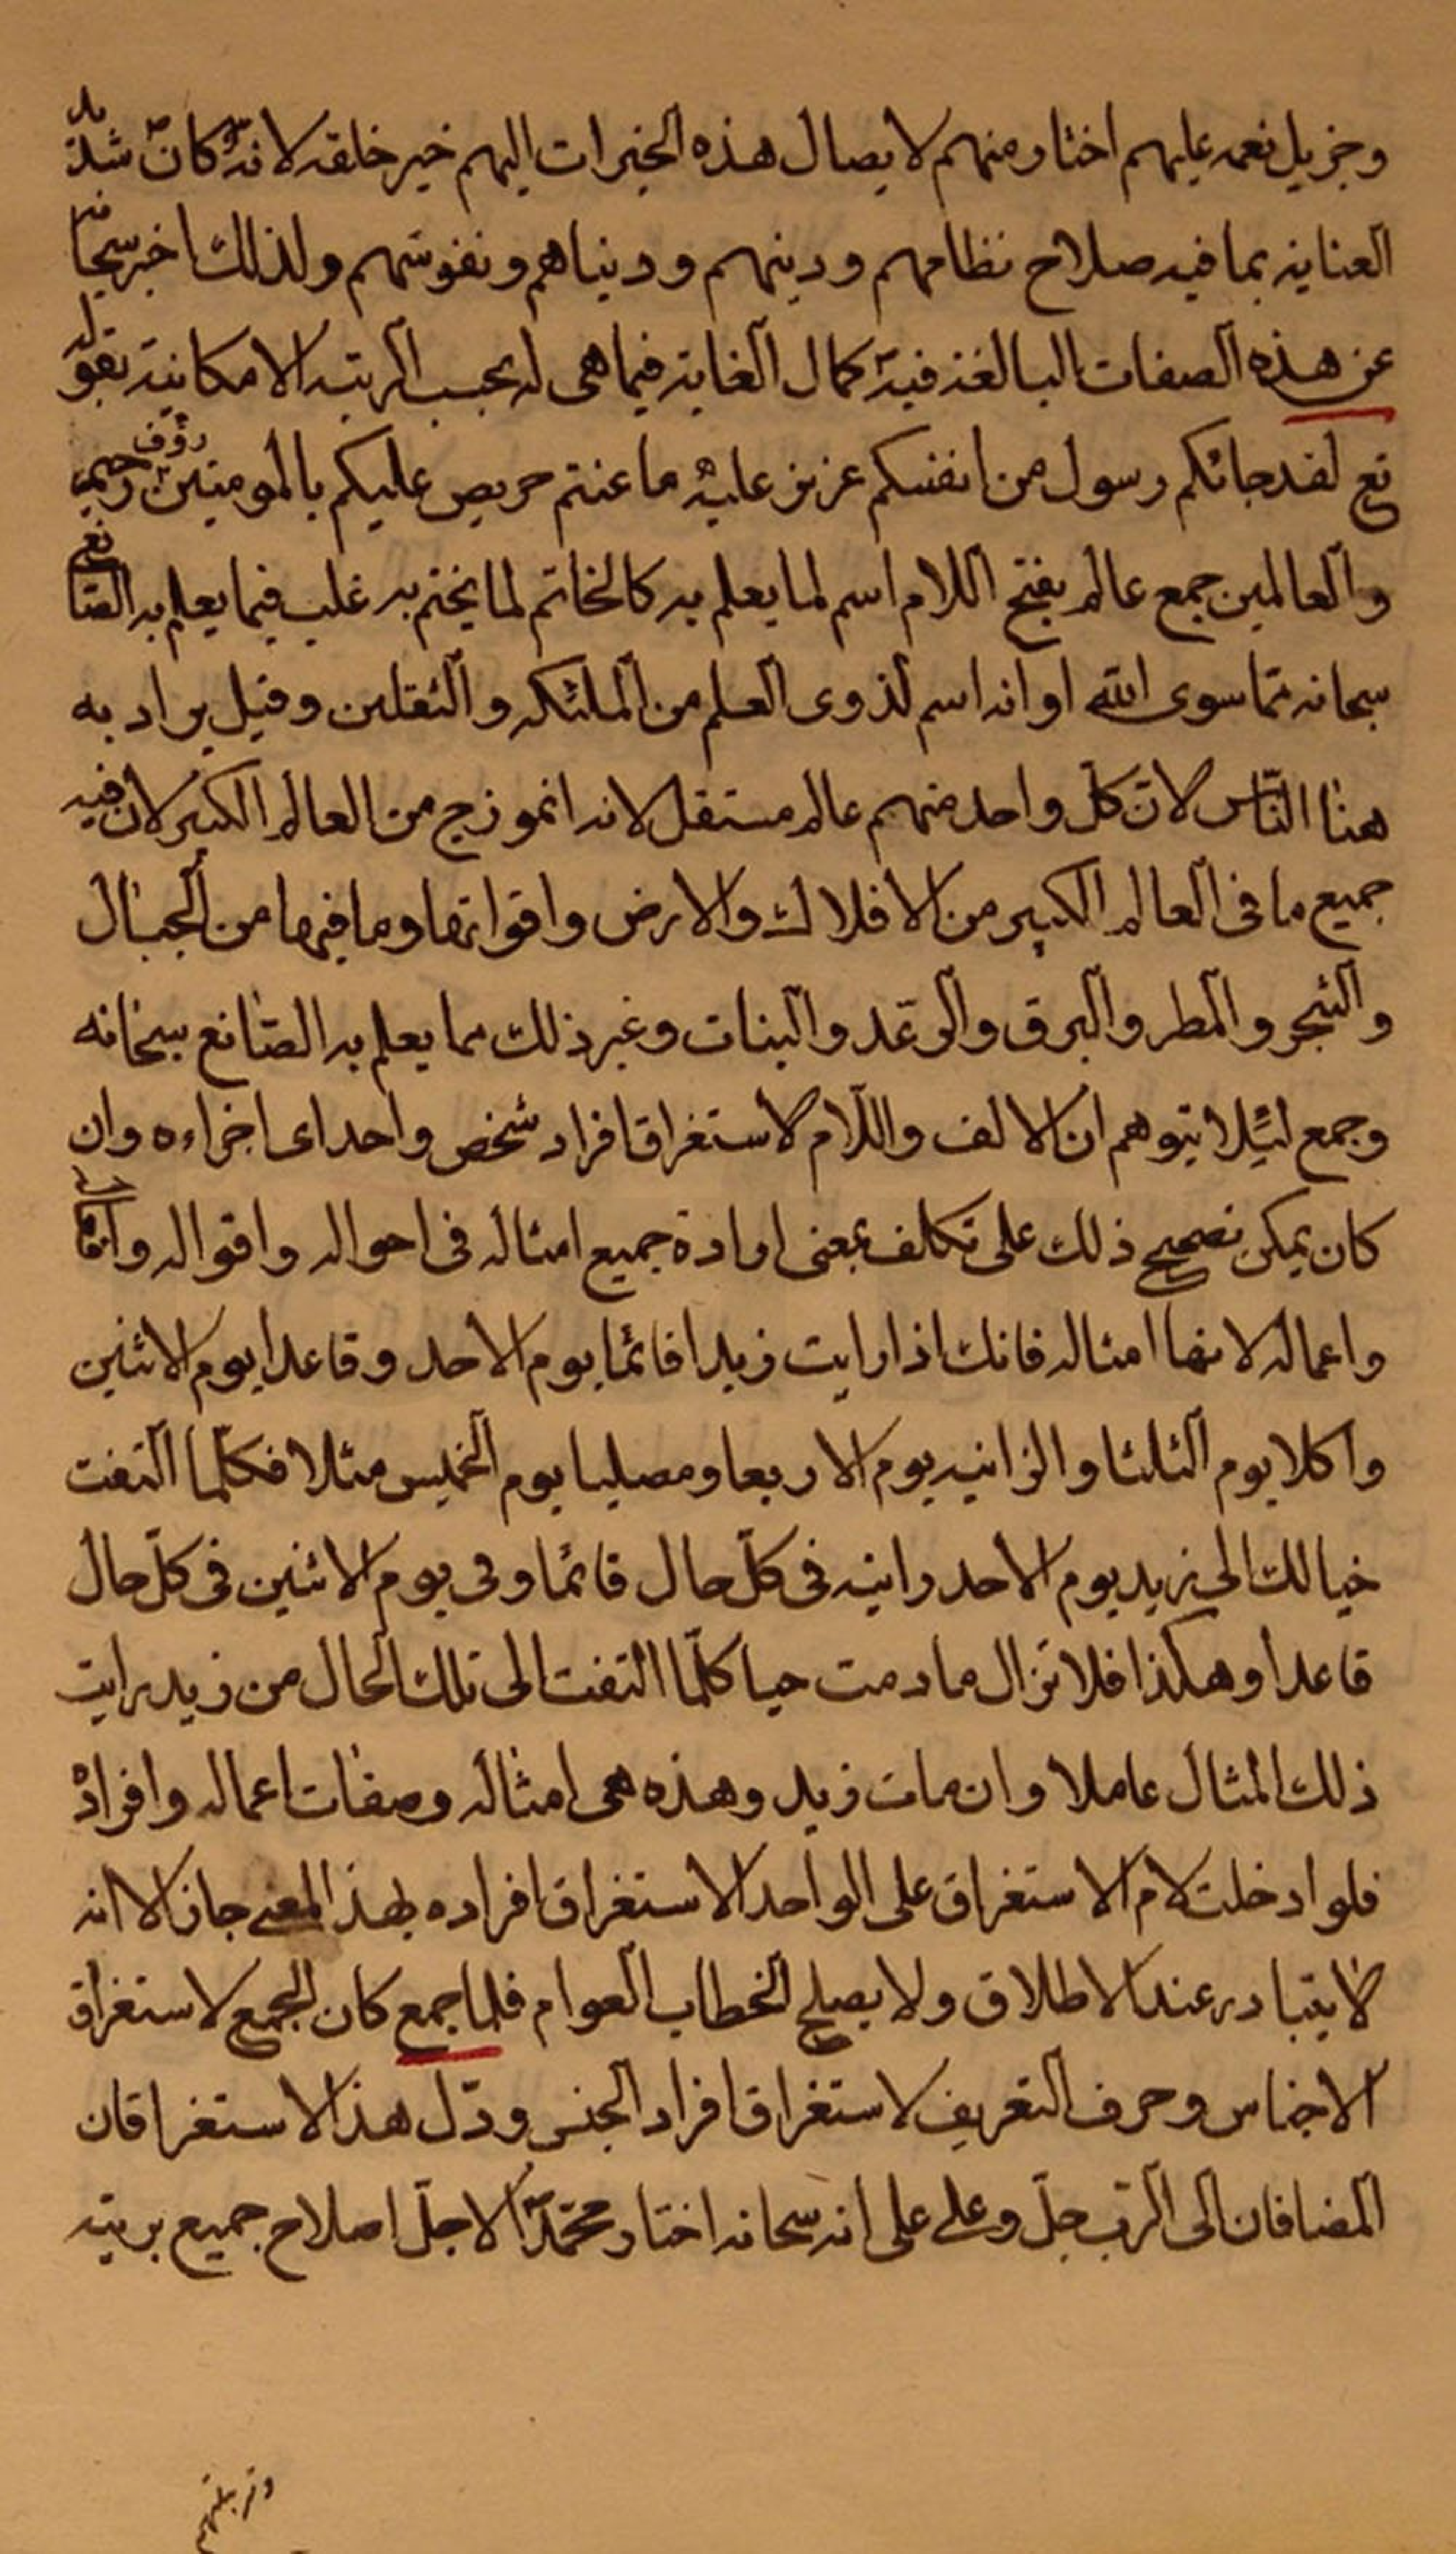 وجزيل نعمه عليهم اختار منهم لايصال هذه الخيرات اليهم خير خلقه لانهّ كان ص شديد
العناية بما فيه صلاح نظامهم ودينهم ودنياهم ونفوسهم ولذلك اخبر سبحانه
عن هذه الصفات البالغة فيه كمال الغاية فيما هى له بحسب الرتبه الامكانية بقوله
تع لقد جائكم رسول من انفسكم عزيز عليه ما عنتم حريص عليكم بالمومنين رؤف رحيم
والعالمين جمع عالم بفتح اللام اسم لما يعلم به كالخاتم لما يختم به غلب فيما يعلم به الصانع
سبحانه مما سوى الله او انه اسم لذوى العلم من الملئكه والثقلين وقيل يراد به
هنا الناس لان كل واحد منهم عالم مستقل لانه انموزج من العالم الكبير لان فيه
جميع ما فى العالم الكبير من الافلاك والارض واقواتها وما فيها من الجبال
والشجر والمطر والبرق والرعد والنبات وغير ذلك مما يعلم به الصانع سبحانه
وجمع لئيلا يتوهم ان الالف واللام لاستغراق افراد شخص واحد اى اجزاءه وان
كان يمكن تصحيح ذلك على تكلف بمعنى ارادة جميع امثاله فى احواله واقواله
واعماله لانها امثاله فانك اذا رايت زيدا قائما يوم الاحد وقاعدا يوم الاثنين
واكلا يوم الثلثا والزانيه يوم الاربعا ومصليا يوم الخميس مثلا فكلما التفت
خيالك الى زيد يوم الاحد رايته فى كل حال قائما وفى يوم الاثنين فى كل حال
قاعدا وهكذا فلا تزال ما دمت حيا كلما التفت الى تلك الحال من زيد رايت
ذلك المثال عاملا وان مات زيد وهذه هى امثاله وصفات اعماله وافراده
فلو ادخلت لام الاستغراق على الواحد الاستغراق افراده بهذ المعنى جاز الا انه
لا يتبادر عند الاطلاق ولا يصلح لخطاب العوام فلما جمع كان الجمع لاستغراق
الاجناس وحرف التعريف لاستغراق افراد الجنس ودل هذ الاستغراقان
المضافان الى الرب جل وعلى على انه سبحانه اختار محمدا ص لاجل اصلاح جميع بريته
وتربيتهم